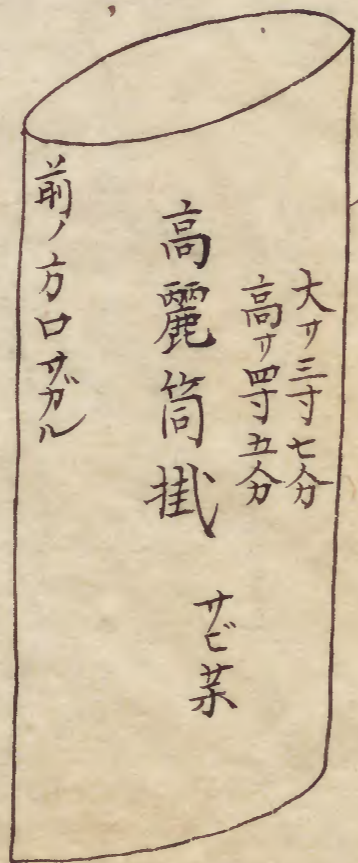 大サ三寸七分
高サ四寸五分
高麗筒掛
サビ茶
前ノ方口サガル